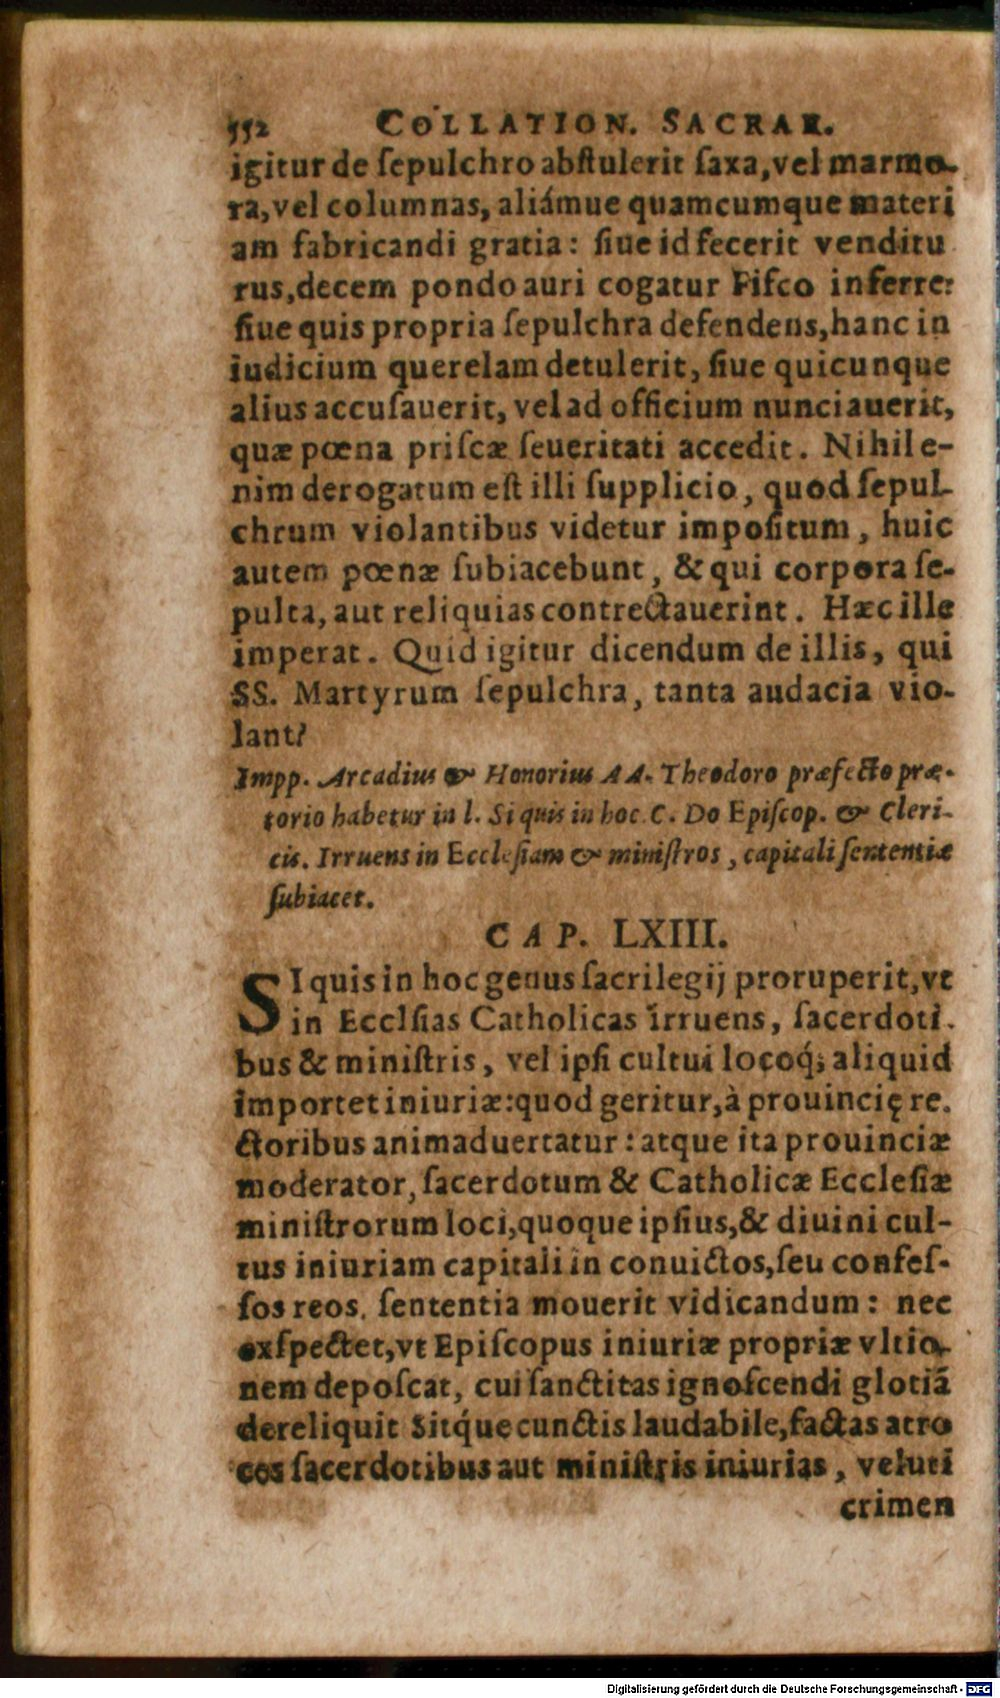 552 COLLATION. SACRAR.
igitur de ſepulchro abſtulerit ſaxa, vel marmo-
ra, vel columnas, aliámue quamcumque materi
am fabricandi gratia: ſiue id fecerit venditu
rus, decem pondo auri cogatur Fiſco inferre:
ſiue quis propria ſepulchra defendens, hanc in
iudicium querelam detulerit, ſiue quicunque
alius accuſauerit, vel ad officium nunciauerit,
quæ pœna priſcæ ſeueritati accedit. Nihil e-
nim derogatum eſt illi ſupplicio, quod ſepul-
chrum violantibus videtur impoſitum, huic
autem pœnæ ſubiacebunt, & qui corpora ſe-
pulta, aut reliquias contrectauerint. Hæc ille
imperat. Quid igitur dicendum de illis, qui
SS. Martyrum ſepulchra, tanta audacia vio-
lant?
Impp. Arcadius & Honorius AA. Theodoro præfecto præ-
torio habetur in l. Si quis in hoc C. Do Epiſcop. & Cleri-
cis. Irruens in Eccleſiam & miniſtros, capitali ſententiæ
ſubiacet.
CAP. LXIII.
SI quis in hoc genus ſacrilegij proruperit, vt
in Ecclſias Catholicas irruens, ſacerdoti.
bus & miniſtris, vel ipſi cultui locoq́; aliquid
importet iniuriæ: quod geritur, à prouincię re.
ctoribus animaduertatur: atque ita prouinciæ
moderator, ſacerdotum & Catholicæ Eccleſiæ
miniſtrorum loci, quoque ipſius, & diuini cul-
tus iniuriam capitali in conuictos, ſeu confeſ-
ſos reos. ſententia mouerit vidicandum: nec
exſpectet, vt Epiſcopus iniuriæ propriæ vltio-
nem depoſcat, cui ſanctitas ignoſcendi glotiã
dereliquit Sitq́ue cunctis laudabile, factas atro
ces ſacerdotibus aut miniſtris iniurias, veluti
crimen
Digitalisierung gefördert durch die Deutsche Forschungsgemeinschaft - DFG